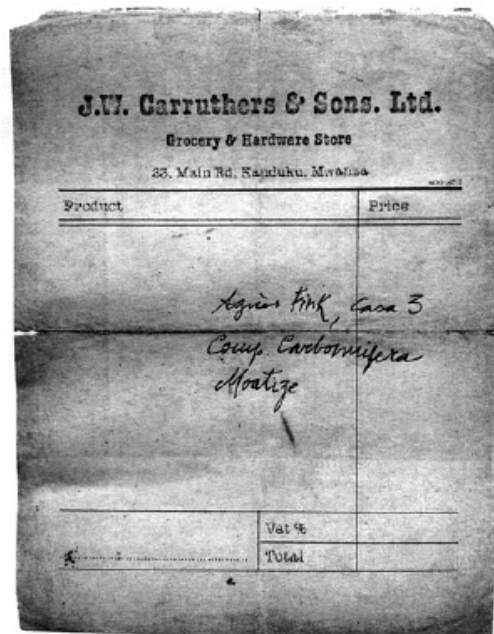 J.W. Carruthers & Sons. Ltd.
Grocery & Hardware Store
33, Main Rd, Kanduku, Mwanza
Product Price
Agnes Fink, Casa 3
Comp. Carbonifera
Moatize
Vat %
Total